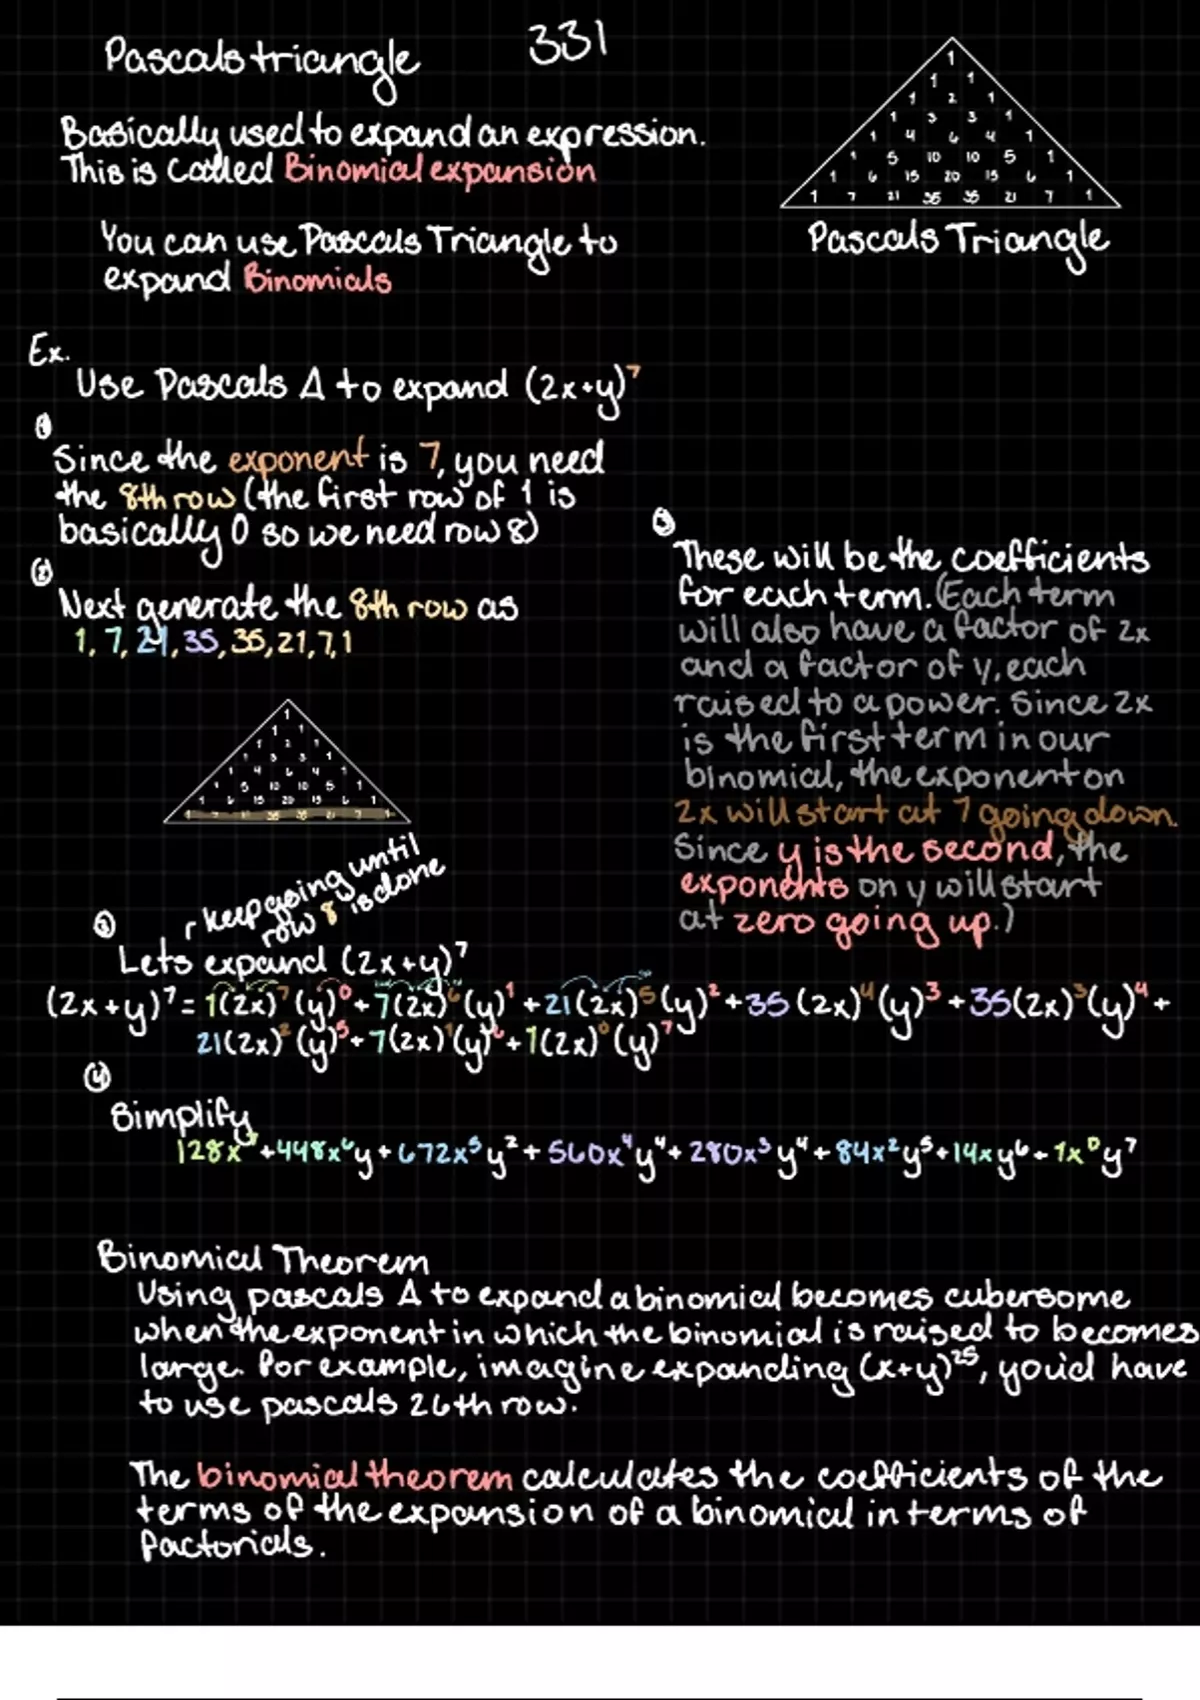 Pascals triangle 331
1
1 1
1 2 1
1 3 3 1
1 4 6 4 1
1 5 10 10 5 1
1 6 15 20 15 6 1
1 7 21 35 35 21 7 1
Pascals Triangle
Basically used to expand an expression.
This is called Binomial expansion
You can use Pascals Triangle to
expand Binomials
Ex.
Use Pascals Δ to expand (2x+y)⁷
①
Since the exponent is 7, you need
the 8th row (the first row of 1 is
basically 0 so we need row 8)
②
Next generate the 8th row as
1, 7, 21, 35, 35, 21, 7, 1
1
1 1
1 2 1
1 3 3 1
1 4 6 4 1
1 5 10 10 5 1
1 6 15 20 15 6 1
1 7 21 35 35 21 7 1
keep going until
row 8 is done
③
These will be the coefficients
for each term. (Each term
will also have a factor of 2x
and a factor of y, each
raised to a power. Since 2x
is the first term in our
binomial, the exponent on
2x will start at 7 going down.
Since y is the second, the
exponents on y will start
at zero going up.)
③
Lets expand (2x+y)⁷
(2x+y)⁷ = 1(2x)⁷(y)⁰+7(2x)⁶(y)¹+21(2x)⁵(y)²+35(2x)⁴(y)³+35(2x)³(y)⁴+
21(2x)²(y)⁵+7(2x)¹(y)⁶+1(2x)⁰(y)⁷
④
Simplify
128x⁷+448x⁶y+672x⁵y²+560x⁴y⁴+280x³y⁴+84x²y⁵+14xy⁶+1x⁰y⁷
Binomial Theorem
Using pascals Δ to expand a binomial becomes cubersome
when the exponent in which the binomial is raised to becomes
large. For example, imagine expanding (x+y)²⁵, you'd have
to use pascals 26th row.
The binomial theorem calculates the coefficients of the
terms of the expansion of a binomial in terms of
factorials.